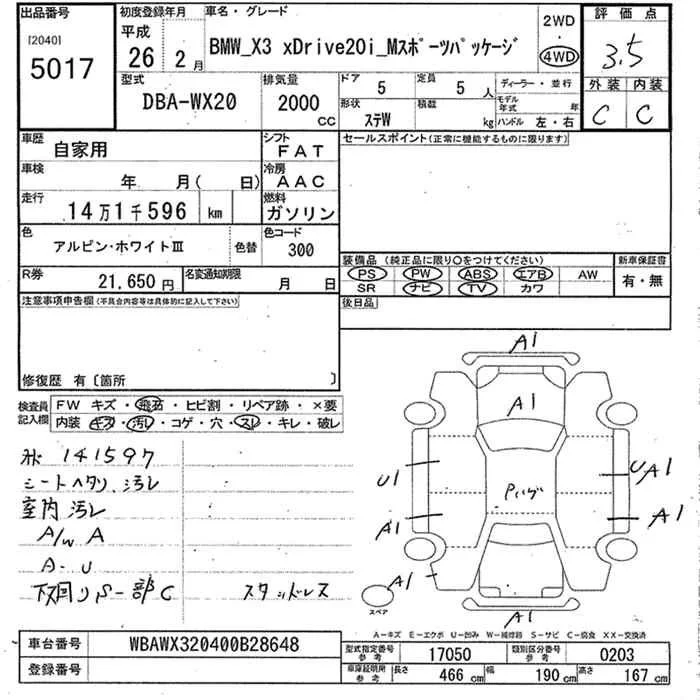 出品番号
[2040]
5017
初度登録年月
平成
26 2月
車名・グレード
BMW_X3 xDrive20i_Mスポーツパッケージ
2WD
・
4WD
評価点
3.5
型式
DBA-WX20
排気量
2000
CC
ドア
5
定員
5人
形状
ステW
積載
kg
ディーラー・並行
モデル年式 年
ハンドル 左・右
外装 内装
C C
車歴
自家用
シフト
FAT
車検
年 月( 日)
冷房
AAC
走行
14万1千596 km
燃料
ガソリン
色
アルピン・ホワイトⅢ
色替
色コード
300
R券
21,650円
名変通知期限
月 日
セールスポイント(正常に機能するものに限ります)
装備品 (純正品に限り○をつけてください)
PS PW ABS エアB AW
SR ナビ TV カワ
新車保証書
有・無
後日品
注意事項申告欄(不具合内容等は具体的に記入して下さい)
修復歴 有〔箇所 〕
検査員
記入欄
FW キズ・飛石・ヒビ割・リペア跡・×要
内装 キズ・汚レ・コゲ・穴・スレ・キレ・破レ
141597
シートヘタリ、汚レ
室内汚レ
A/W A
A-U
下回りS-一部C
スタッドレス
A1
A1
U1
UA1
Pハゲ
A1
A1
A1
スペア
A1
A-キズ E-エクボ U-凹み W-補修跡 S-サビ C-腐食 XX-交換済
車台番号
WBAWX320400B28648
登録番号
型式指定番号
参考
17050
類別区分番号
参考
0203
車庫証明用
参考
長さ
466 cm
幅
190 cm
高さ
167 cm